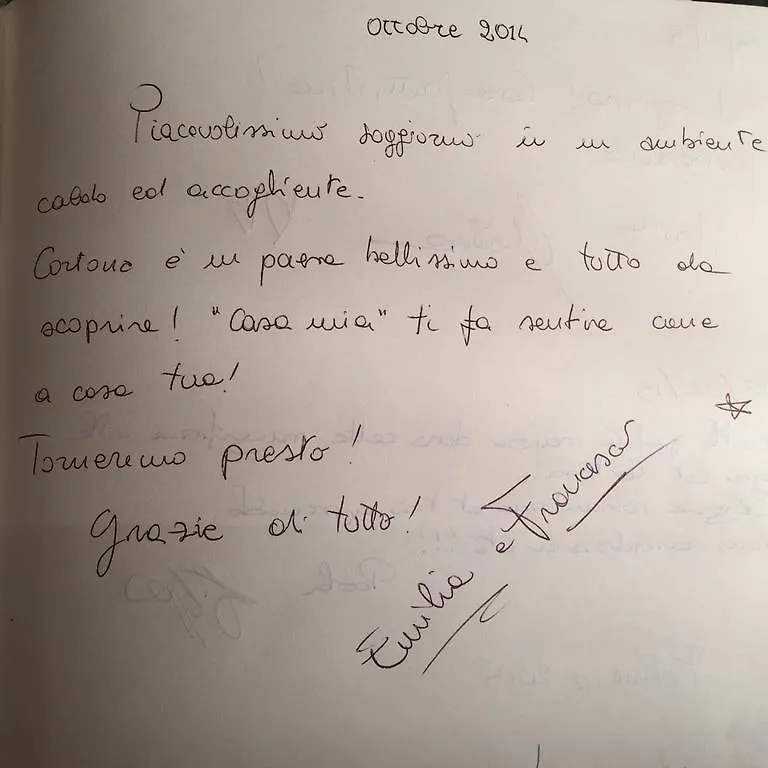 Ottobre 2014
Piacevolissimo soggiorno in un ambiente
caldo ed accogliente.
Cortona è un paese bellissimo e tutto da
scoprire! "Casa mia" ti fa sentire come
a casa tua!
Torneremo presto!
Grazie di tutto!
Emilia e Francesca